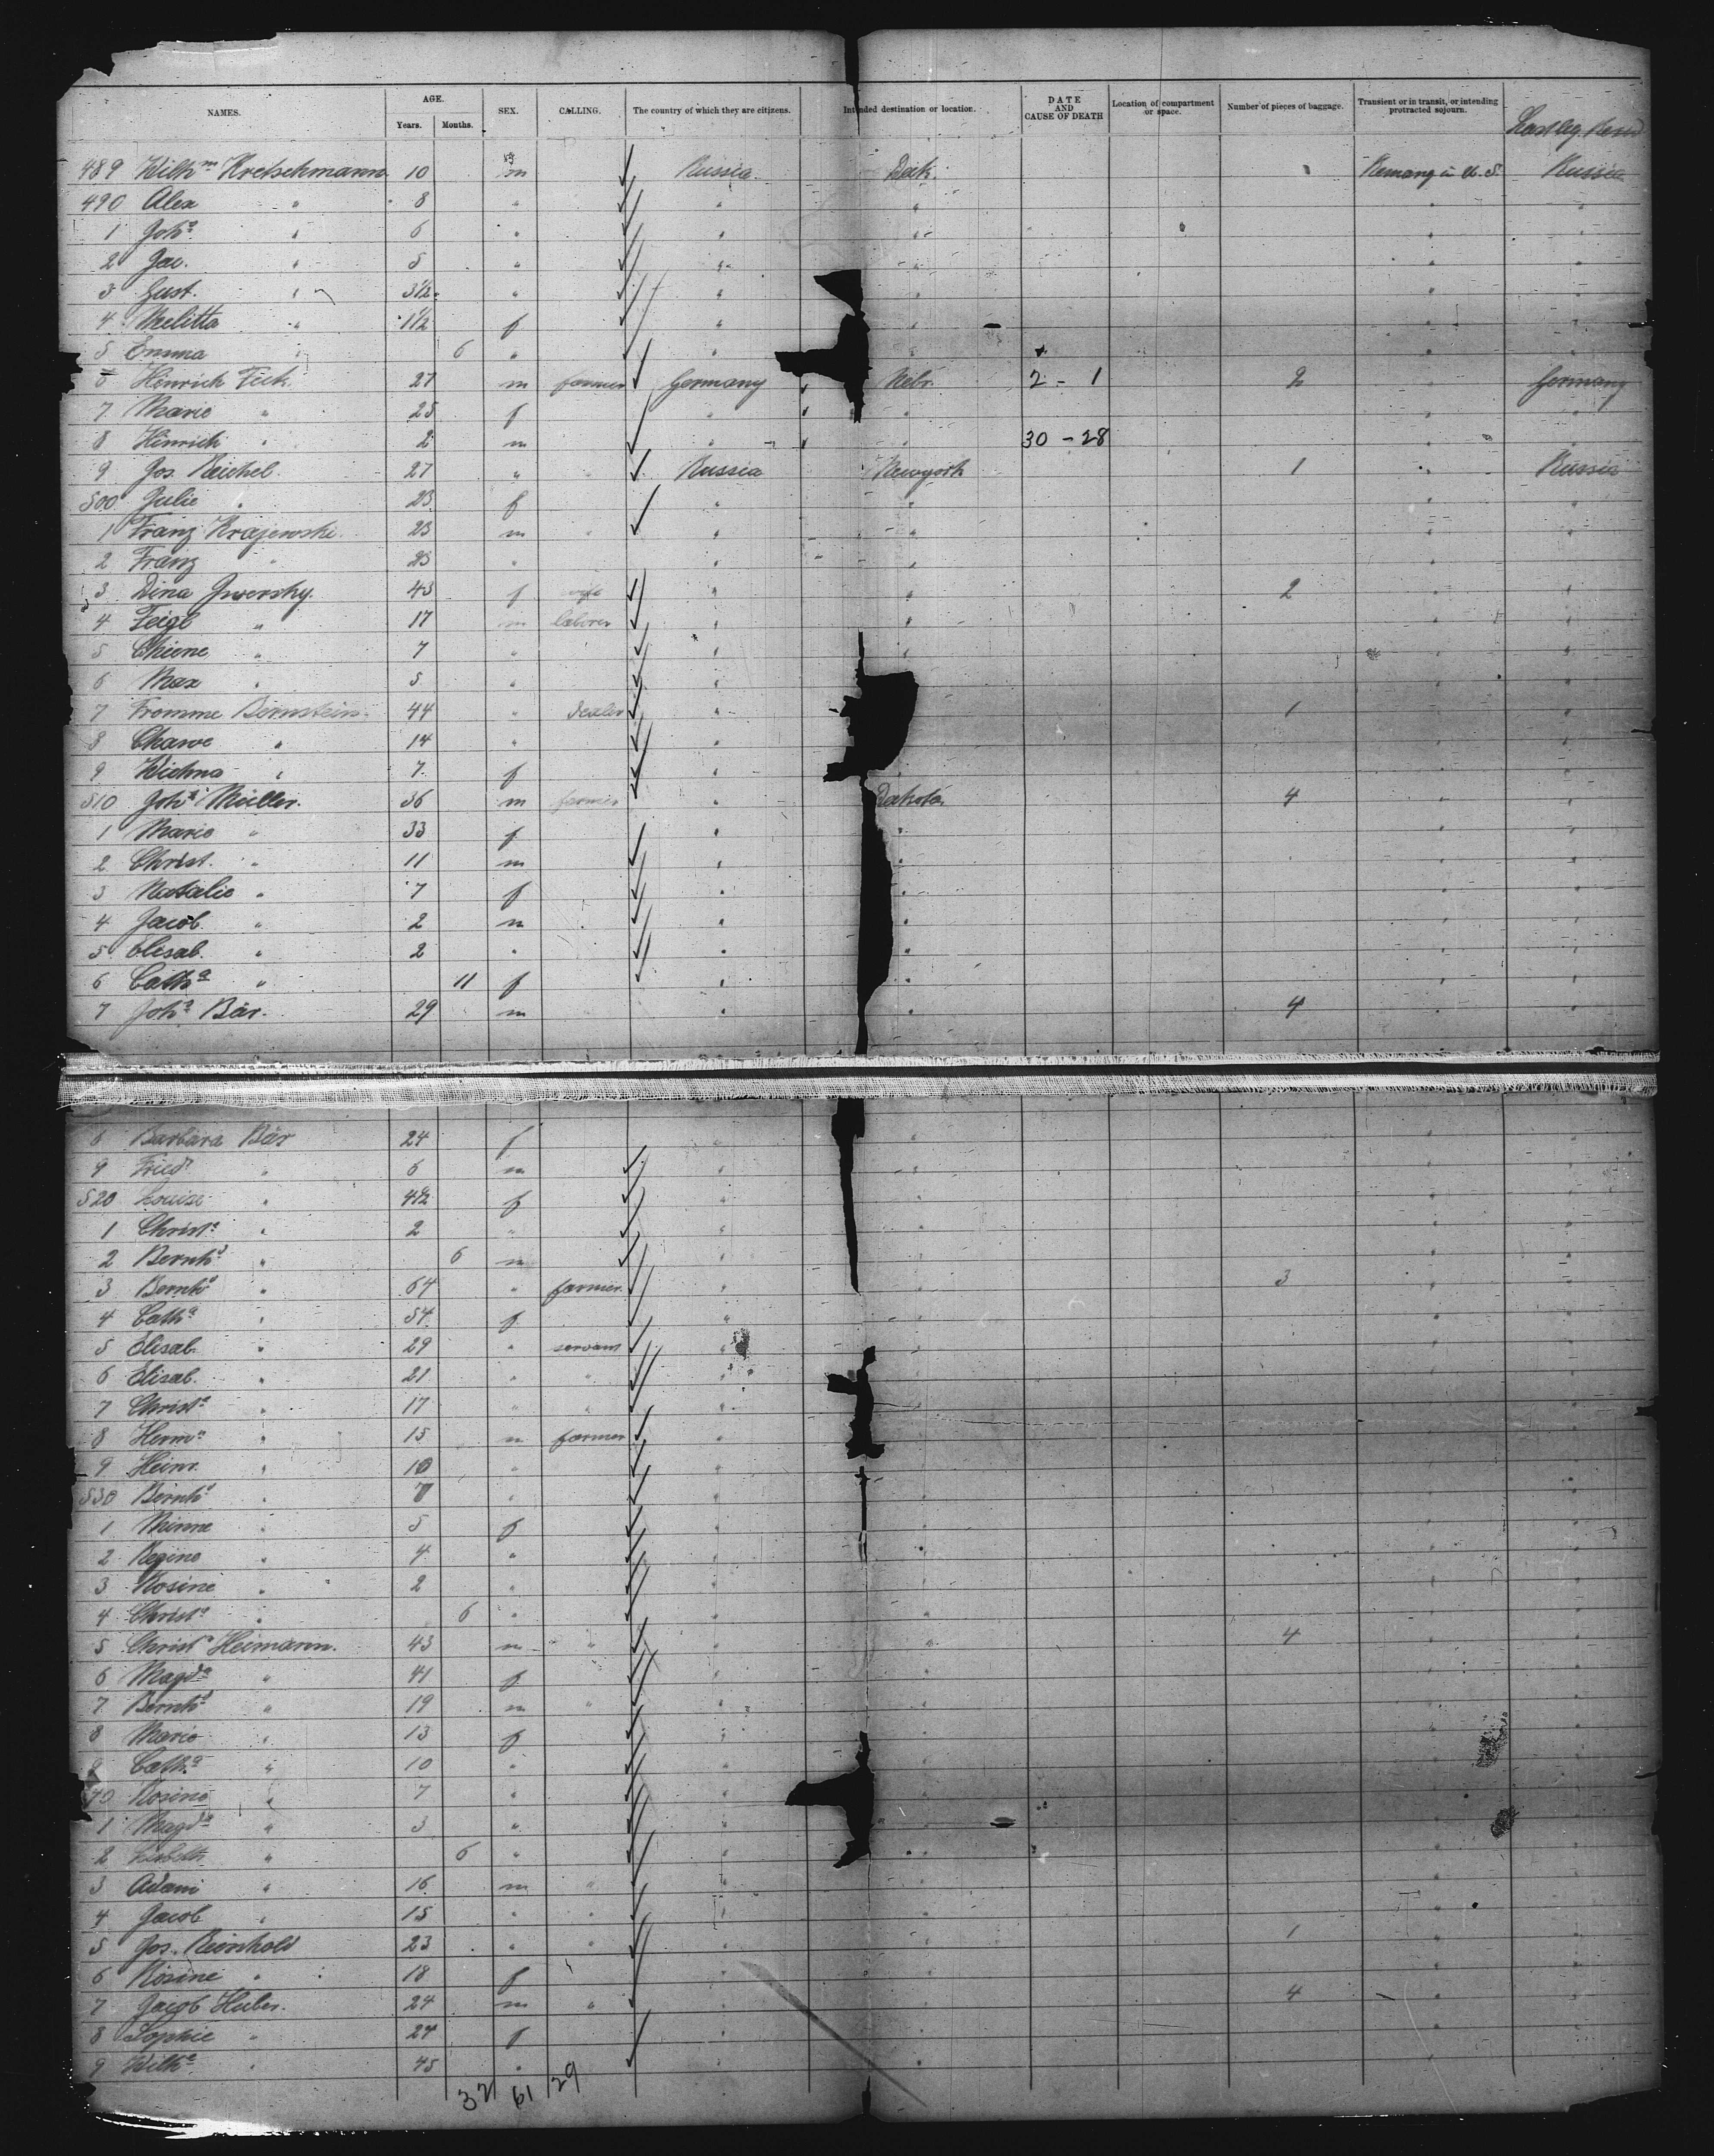 NAMES. AGE. Years. Mouths. SEX. CALLING. The country of which they are citizens. Intended destination or location. DATE AND CAUSE OF DEATH Location of compartment or space. Number of pieces of baggage. Transient or in transit, or intending protracted sojourn.
489 Wilhm Kretschmann 10 m Russia Dak. Russia
490 Alex " 8 " " " " "
1 Joha " 6 " " " " "
2 Jac. " 5 " " " " "
3 Gust. " 3 1/2 " " " " "
4 Melitta " 1 1/2 f " " " "
5 Emma " 6 " " " " "
6 Heinrich Fick 27 m farmer Germany Nebr. 2 - 1 2 " Germany
7 Marie " 25 f " " " "
8 Hinrich " 2 m " " 30 - 28 " "
9 Jos. Reichel. 27 " " Russia Newyork 1 " Russia
500 Julie " 23 f " " " "
1 Franz Krajewski. 23 m " " " " "
2 Franz " 23 " " " " "
3 Dina Gwersky. 43 f wife " " 2 " "
4 Feigl " 17 m laborer " " " "
5 Chiene " 7 " " " " "
6 Max " 5 " " " " "
7 Fromme Bernstein 44 " dealer " 1 " "
8 Chawe " 14 " " " "
9 Wichna " 7 f " " " "
510 Joha Müller. 36 m farmer " Dakota 4 " "
1 Marie " 33 f " " " "
2 Christ. " 11 m " " " "
3 Natalie " 7 f " " " "
4 Jacob " 2 m " " " "
5 Elisab. " 2 " " " " "
6 Catha " 11 f " " " "
7 Joha Bär. 29 m " " 4 " "
8 Barbara Bär 24 f " " " "
9 Friedr " 6 m " " " "
520 Louise " 4 1/2 f " " " "
1 Christa " 2 " " " " "
2 Bernhd " 6 m " " " "
3 Bernhd " 64 " farmer " " 3 " "
4 Catha " 54 f " " " "
5 Elisab. " 29 " servant " " " "
6 Elisab. " 21 " " " " " "
7 Christa " 17 " " " " " "
8 Herma " 15 m farmer " " " "
9 Heinr. " 10 " " " " "
530 Bernhd " 7 " " " " "
1 Minne " 5 f " " " "
2 Regine " 4 " " " " "
3 Rosine " 2 " " " " "
4 Christa " 6 " " " " "
5 Christa Heimann. 43 m " " " 4 " "
6 Magda " 41 f " " " "
7 Bernhd " 19 m " " " " "
8 Marie " 13 f " " " "
9 Catha " 10 " " " " "
40 Rosine " 7 " " " " "
1 Magda " 3 " " " " "
2 Lisbeth " 6 " " " " "
3 Adam " 16 m " " " " "
4 Jacob " 15 " " " " " "
5 Jos. Reinhold 23 " " " " 1 " "
6 Rosine " 18 f " " " "
7 Jacob Huber. 24 m " " " 4 " "
8 Sophie " 24 f " " " "
9 Wilha " 45 " " " " "
32 61 29